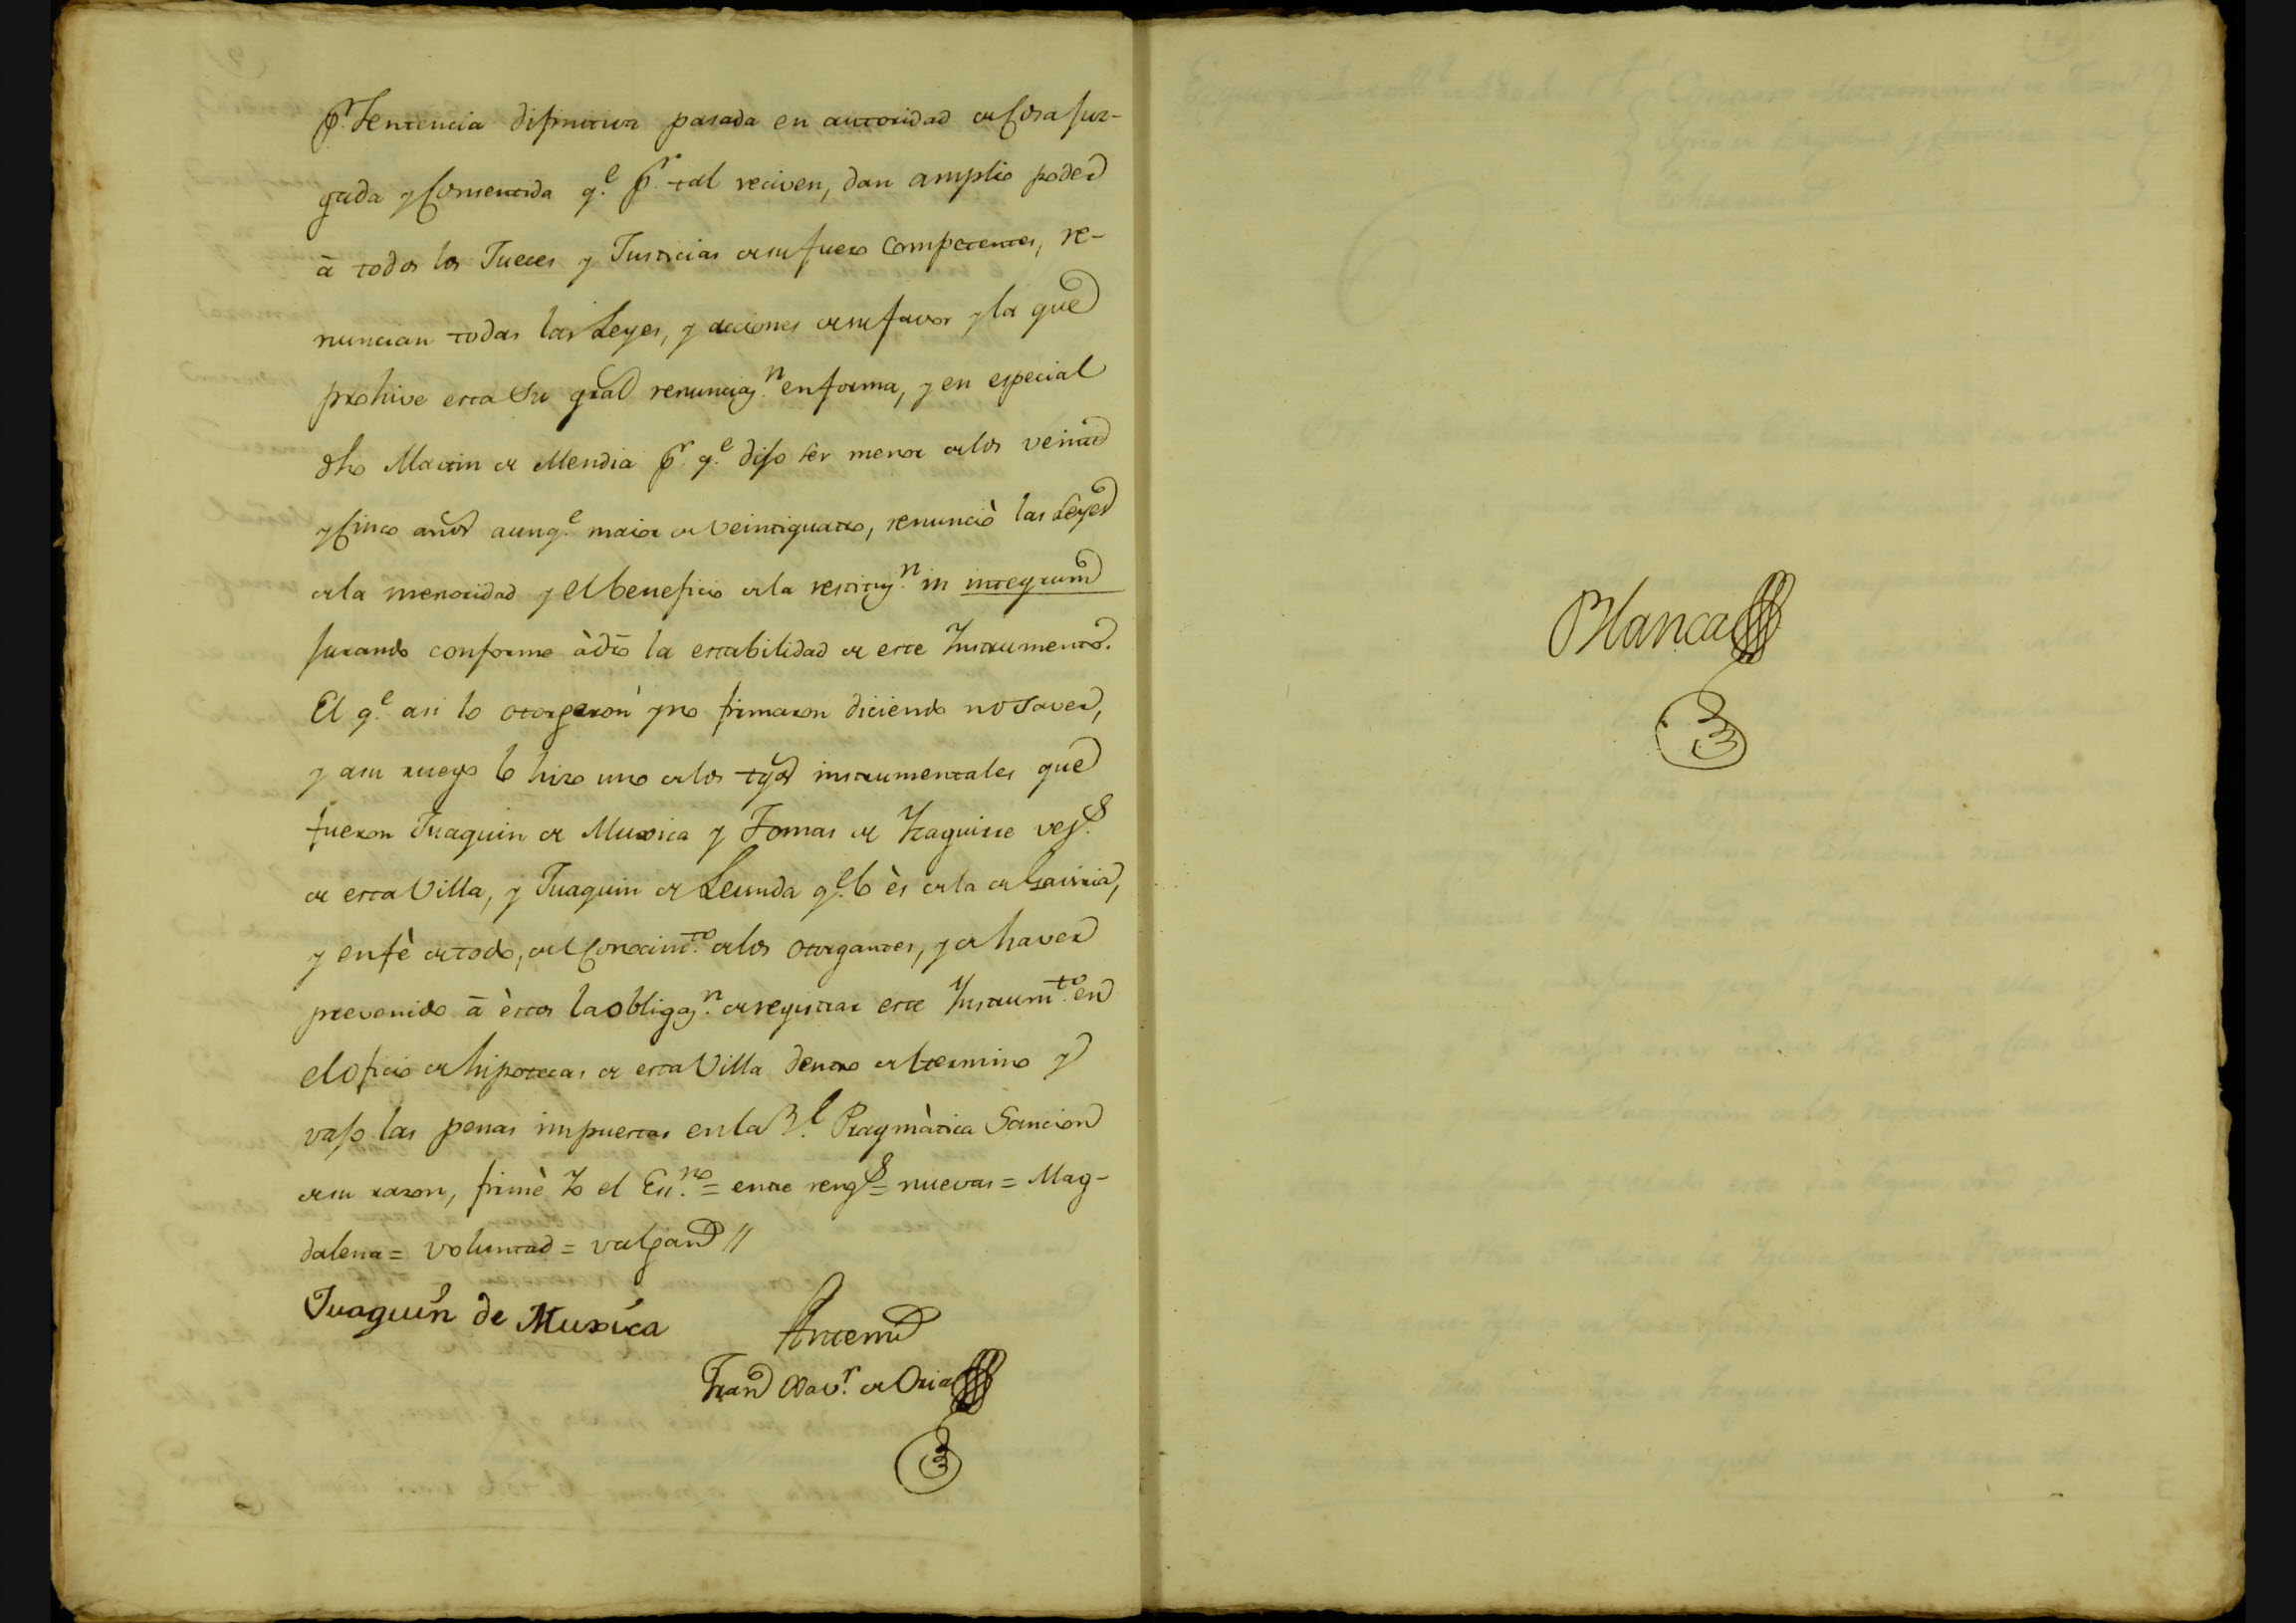 pr. Sentencia difinitiva pasada en autoridad de Cosa juz-
gada y Consentida q.e pr. tal reciven, dan amplio poder
à todos los Jueces y Justicias de su fuero competentes, re-
nuncian todas las Leyes, y acciones de su favor y la que
prohive esta Su gral renunciaz.n en forma, y en especial
dho Martin de Mendia pr. q.e dijo ser menor de los veinte
y Cinco años aunq.e maior de Veintiquatro, renunciò las Leyes
de la menoridad y el beneficio de la restituz.n in integrum
jurando conforme à dro la estabilidad de este Instrumento.
El q.e asi lo otorgaron y no firmaron diciendo no saver,
y a su ruego lo hizo uno de los tgos instrumentales que
fueron Juaquin de Muxica y Tomas de Yzaguirre vez.s
de esta Villa, y Juaquin de Leunda q.e lo ès de la de Gaviria,
y en fè de todo, del Conocim.to de los otorgantes, y de haver
prevenido à èstos la obligaz.n de registrar este Instrum.to en
el oficio de hipotecas de esta Villa dentro del termino y
vajo las penas impuestas en la R.l Pragmàtica Sancion
de su razon, firmè Yo el Ess.no = entre reng.s = nuevas = Mag-
dalena = Voluntad = valgan //
Juaquin de Muxica
Antemi
Fran Xav.r de Oria
Blanca